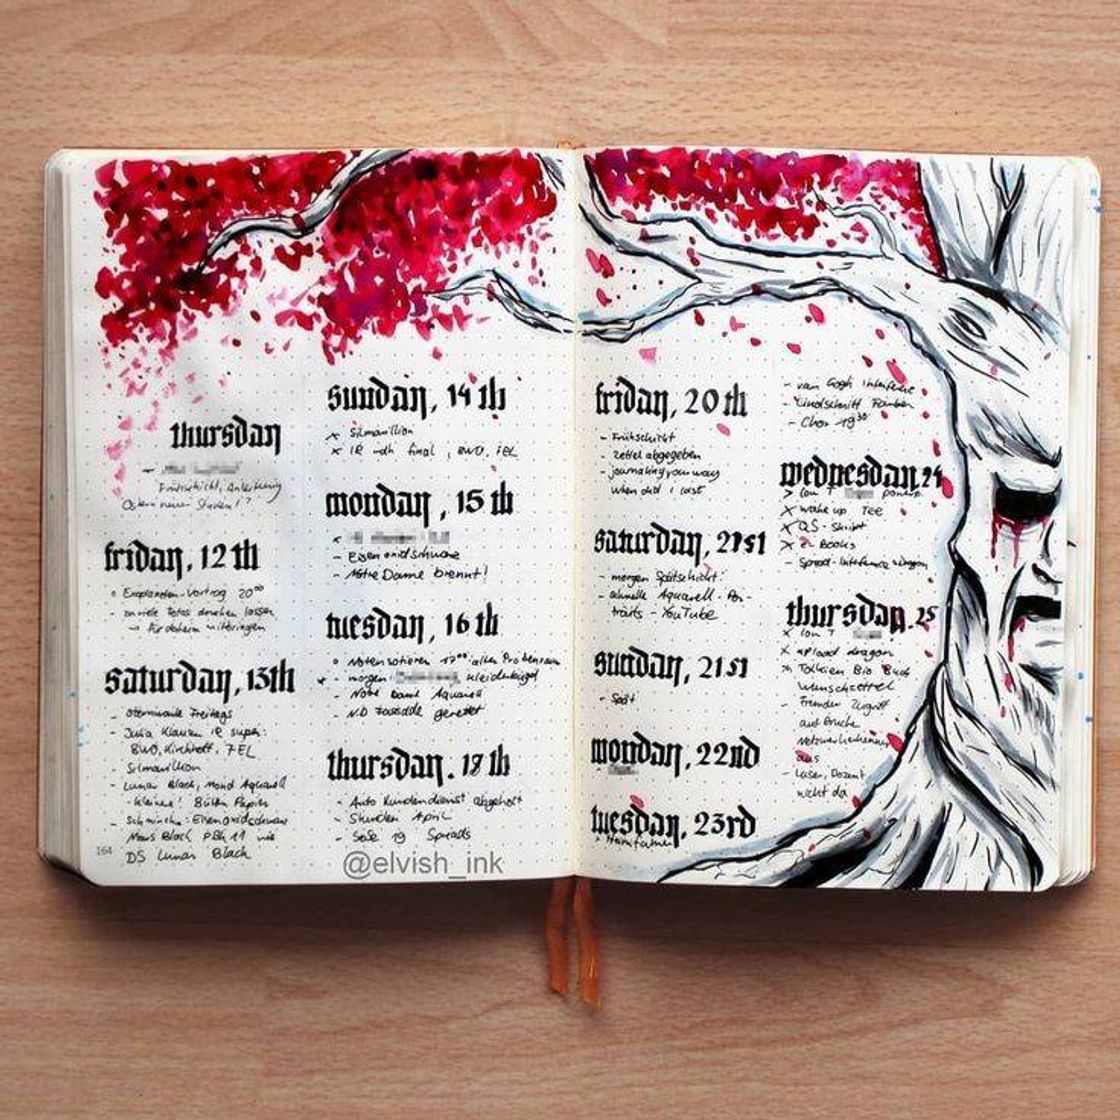 thursday
Frühschicht, Anleitung
Ostern neuer Studen!?
friday, 12th
Exoplaneten-Vortrag 20⁰⁰
- zu viele Fotos drucken lassen
→ für daheim mitbringen
saturday, 13th
- Freitags
- Julia Klausur IR super:
BWO, Kirchhoff, FEL
- Silmarillion
- Lunar Black, Mond Aquarell
- kleines! Bütten Papier
- Schmincke: Eisenoxidschwarz
Mars Black PBk 11 wie
DS Lunar Black
164
sunday, 14th
x Silmarillion
x IR final, BWO, FEL
monday, 15th
- Eisenoxidschwarz
- Notre Dame brennt!
tuesday, 16th
o Noten sortieren 17⁰⁰ alter Probenraum
- morgen Kleiderbügel
- Notre Dame Aquarell
- N.D Fassade gerettet
thursday, 18th
- Auto Kundendienst abgeholt
- Stunden April
- SoSe 19 Spreads
@elvish_ink
friday, 20th
- Frühschicht
- Zettel abgegeben
- journaling your way
when did I last
saturday, 21st
- morgen Spätschicht
- schnelle Aquarell-Por-
traits - YouTube
sunday, 21st
- Spät
monday, 22nd
tuesday, 23rd
- van Gogh Interferenz
- Lindschnitt Farben
- Chor 19³⁰
wednesday, 24
x wake up Tee
x QS-Shirt
x e-Books
- Spread-Interferenz
thursday, 25
x upload dragon
Tolkien Bio Buch
Wunschzettel
- Fremder Zugriff
auf Drucker
Netzwerkerkennung
aus
- Laser, Dozent
nicht da